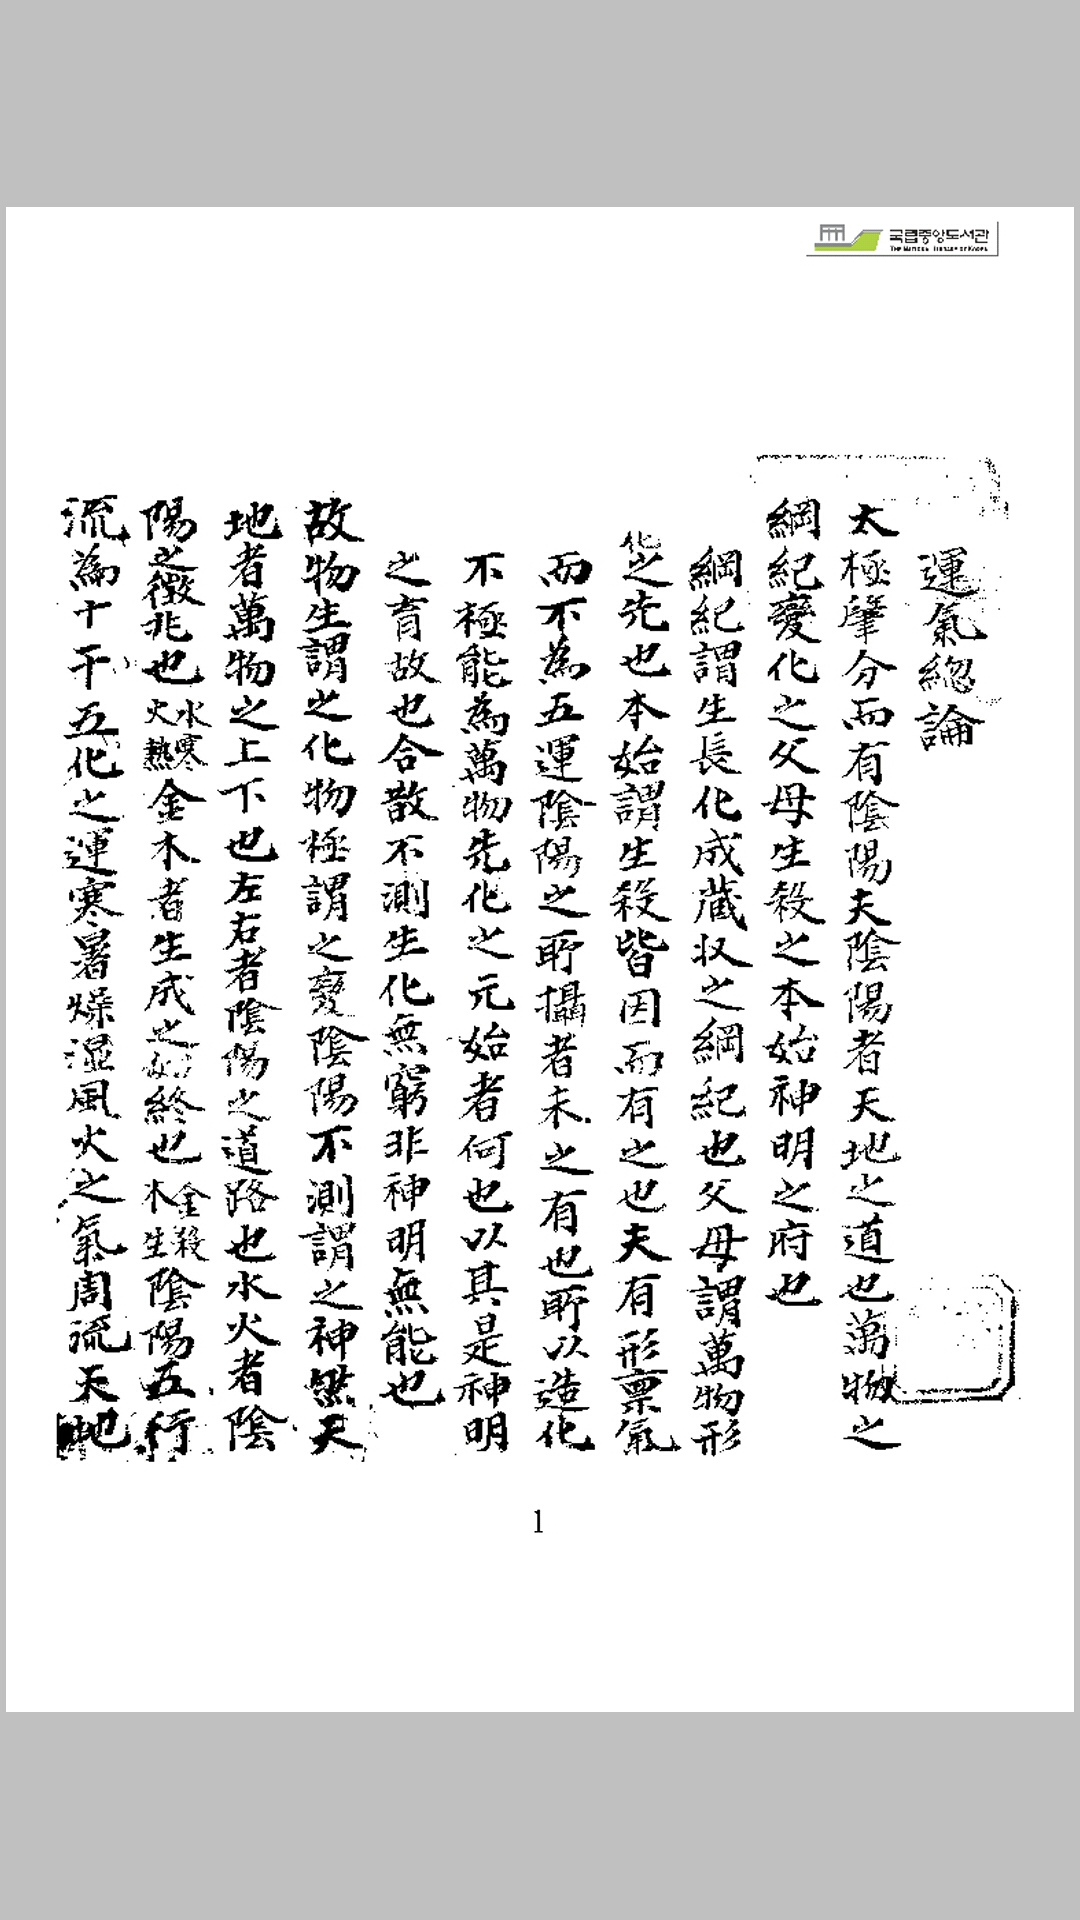 국립중앙도서관
THE NATIONAL LIBRARY OF KOREA
運氣總論
太極肇分而有陰陽夫陰陽者天地之道也萬物之
綱紀變化之父母生殺之本始神明之府也
綱紀謂生長化成藏収之綱紀也父母謂萬物形
化之先也本始謂生殺皆因而有之也夫有形稟氣
而不為五運陰陽之所攝者未之有也所以造化
不極能為萬物先化之元始者何也以其是神明
之育故也合散不測生化無窮非神明無能也
故物生謂之化物極謂之變陰陽不測謂之神無天
地者萬物之上下也左右者陰陽之道路也水火者陰
陽之徵兆也水寒火熱金木者生成之始終也金殺木生陰陽五行
流為十干五化之運寒暑燥湿風火之氣周流天地
1